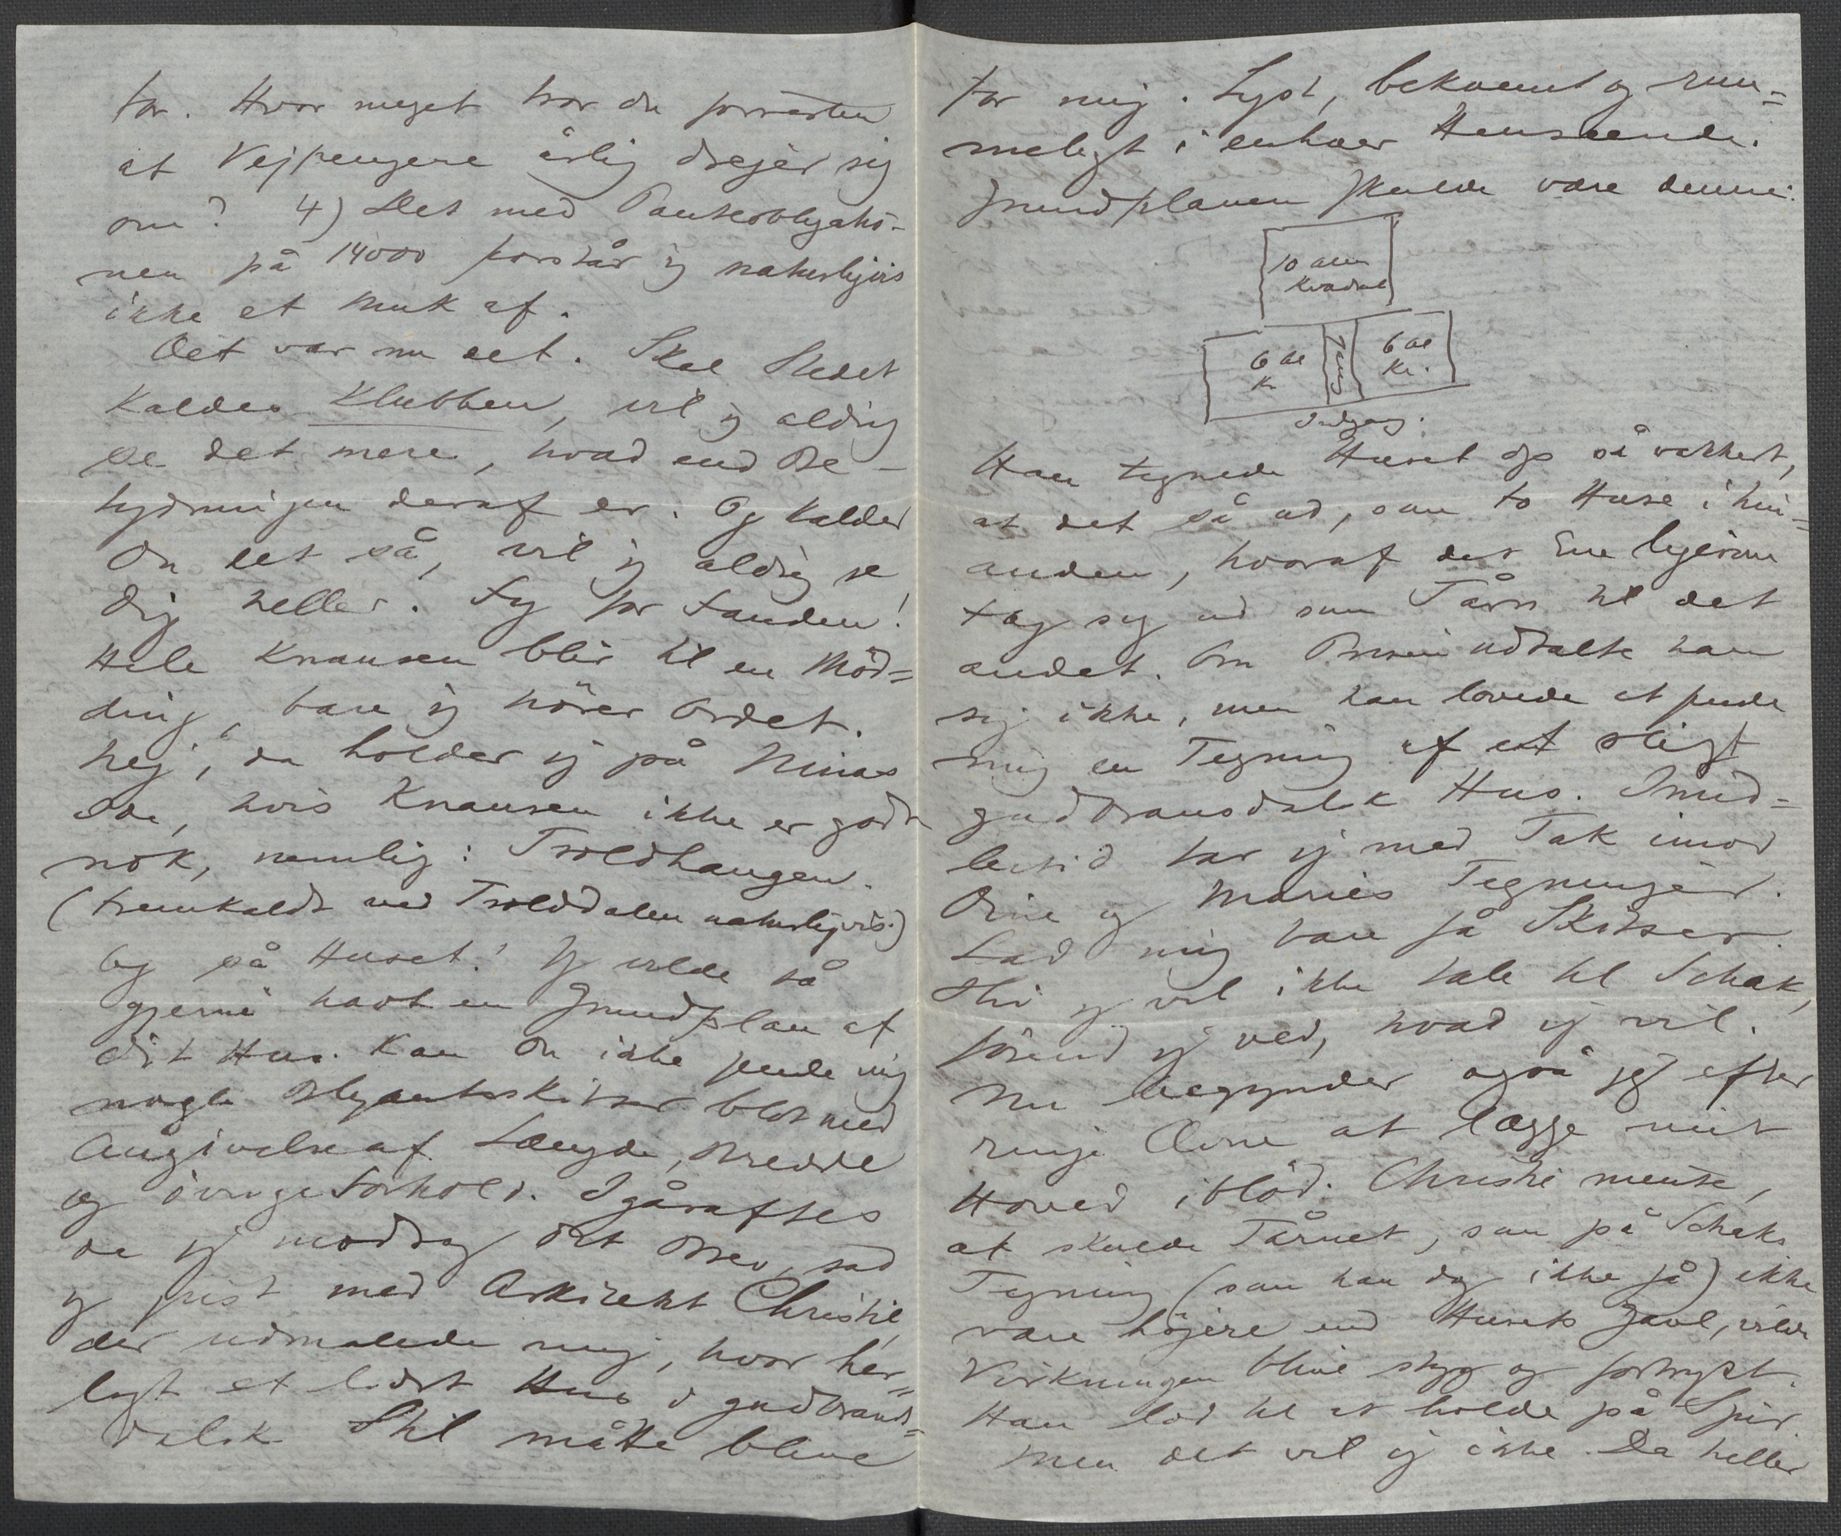 for. Hvor meget tror du forresten
at Vejpengene årlig drejer sig
om? 4) Det med Panteobligatio-
nen på 14000 forstår jeg naturligvis
ikke et Muk af.
Det var nu det. Skal Stedet
kaldes Klubben, vil jeg aldrig
se det mere, hvad end Be-
tydningen deraf er. Og kalder
Du det så, vil jeg aldrig se
Dig heller. Fy for Fanden!
Hele Knausen blir til en Mød=
ding, bare jeg hører Ordet.
Nej, da holder jeg på Ninas
Ide, hvis Knausen ikke er godt
nok, nemlig: Troldhaugen.
(fremkaldt ved Trolddalen naturligvis.)
Og så Huset! Jeg vilde så
gjerne havt en Grundplan af
Dit Hus. Kan Du ikke sende mig
nogle Blyantsskitser blot med
Angivelse af Længde, Bredde
og øvrige Forhold. Igåraftes
da jeg modtog Dit Brev, sad
jeg just med Arkitekt Christie,
der udmalede mig, hvor her=
ligt et lidet Hus i gudbrands=
dalsk Stil måtte blive
for mig. Lyst, bekvemt og rum=
meligt i enhver Henseende.
Grundplanen skulde være denne:
10 alen
Kvadrat
6 al
Kv.
Gang
6 al
Kv.
Indgang.
Han tegnede Huset op så vakkert,
at det så ud, som to Huse i hin=
anden, hvoraf det Ene ligesom
tog sig ud som Tårn til det
andet. Om Prisen udtalte han
sig ikke, men han lovede at sende
mig en Tegning af et sligt
gudbransdalsk Hus. Imid=
lertid tar jeg med Tak imod
Dine og Maries Tegninger.
Lad mig bare få Skitser.
Thi jeg vil ikke tale til Schak,
førend jeg ved, hvad jeg vil.
Nu begynder også jeg efter
ringe Ævne at lægge mit
Hoved iblød. Christie mente,
at skulde Tårnet, som på Schaks
Tegning (som han dog ikke så) ikke
være højere end Husets Gavl, vilde
Virkningen blive styg og fortrykt.
Han lod til at holde på Spir.
Men det vil jeg ikke. Da heller